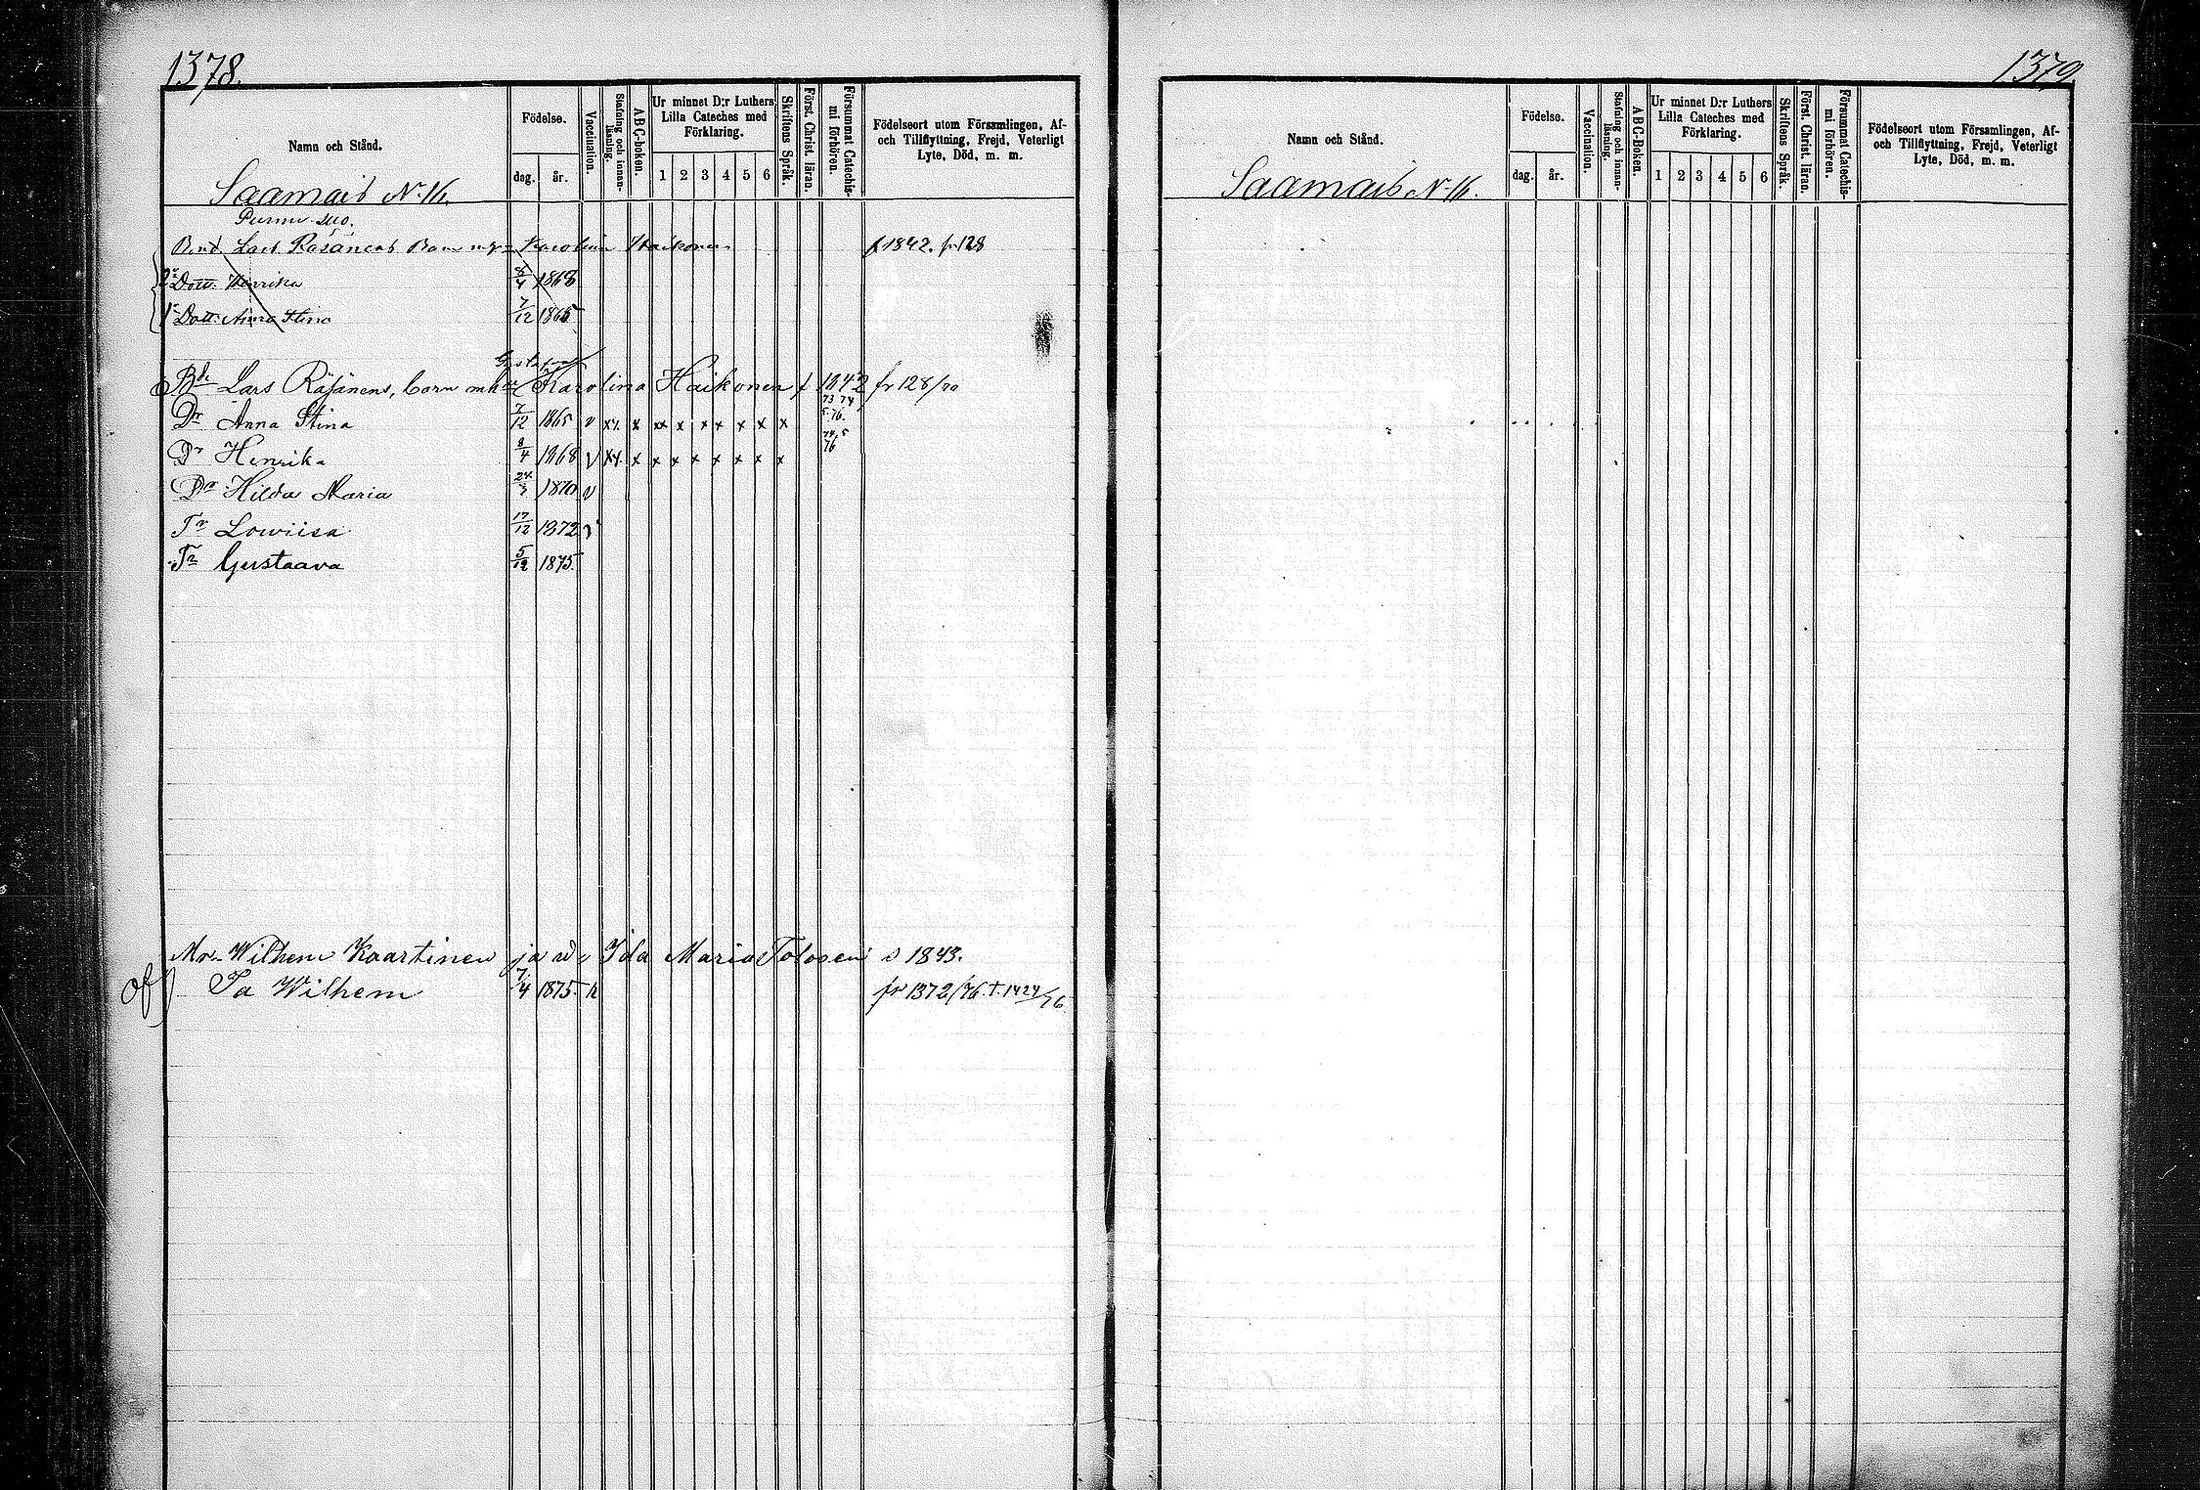 1378.
Namn och Stånd.
Födelse.
dag. år.
Vaccination.
Stafning och innan-läsning.
A B C-boken.
Ur minnet D:r Luthers
Lilla Cateches med
Förklaring.
1 2 3 4 5 6
Skriftens Språk.
Först. Christ. läran.
Försummat Catechis-mi förhören.
Födelseort utom Församlingen, Af-
och Tillflyttning, Frejd, Veterligt
Lyte, Död, m. m.
Saamais No 16.
Bnd. Lars Räsänens Barn Karolina Haikonen f 1842. fr 128
2 Dott. Henrika 8/4 1868
1 Dott. Anna Stina 7/12 1865
Gustafva
Bde Lars Räsänens, barn mh Karolina Haikonen f 1842 fr 128/70
73 74
Dr Anna Stina 7/12 1865 v xx x xx x xx x x x 5. 76.
Dr Henrika 8/4 1868 v xx x x x x x x x x 74, 5 76
Dr Hilda Maria 24/3 1870 v
Tr Lowiisa 17/12 1872 v
Tr Gustaava 5/12 1875.
Mr Wilhem Kaartinen ja w. Ida Maria Tolosen s 1843.
Pa Wilhem 7/4 1875. fr 1372/76. t. 1424/76
of
1379
Namn och Stånd.
Födelse.
dag. år.
Vaccination.
Stafning och innan-läsning.
A B C-Boken.
Ur minnet D:r Luthers
Lilla Cateches med
Förklaring.
1 2 3 4 5 6
Skriftens Språk.
Först. Christ. läran.
Försummat Catechis-mi förhören.
Födelseort utom Församlingen, Af-
och Tillflyttning, Frejd, Veterligt
Lyte, Död, m. m.
Saamais No 16.